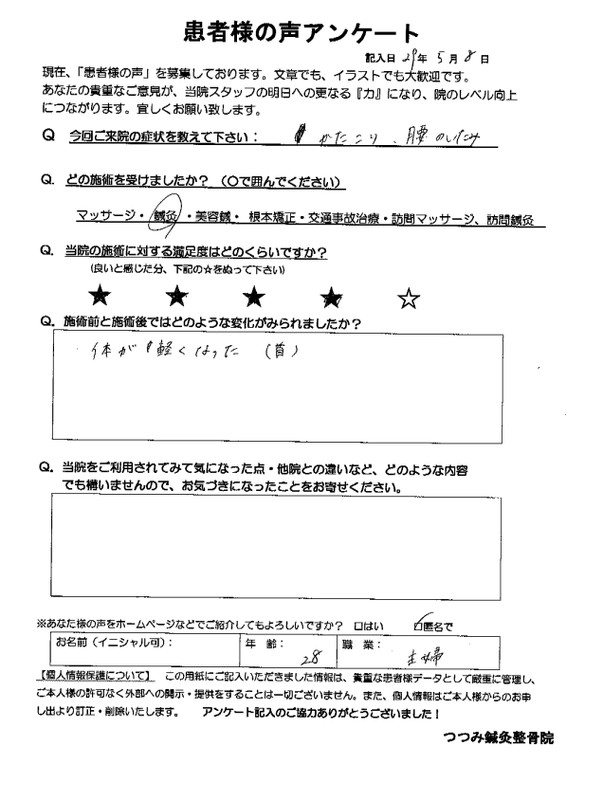 患者様の声アンケート
記入日 29年 5月 8日
現在、「患者様の声」を募集しております。文章でも、イラストでも大歓迎です。
あなたの貴重なご意見が、当院スタッフの明日への更なる『力』になり、院のレベル向上
につながります。宜しくお願い致します。
Q 今回ご来院の症状を教えて下さい： かたこり、腰のいたみ
Q. どの施術を受けましたか？（○で囲んでください）
マッサージ・鍼灸・美容鍼・根本矯正・交通事故治療・訪問マッサージ、訪問鍼灸
Q. 当院の施術に対する満足度はどのくらいですか？
（良いと感じた分、下記の☆をぬって下さい）
★ ★ ★ ★ ☆
Q. 施術前と施術後ではどのような変化がみられましたか？
・体が軽くなった （首）
Q. 当院をご利用されてみて気になった点・他院との違いなど、どのような内容
でも構いませんので、お気づきになったことをお寄せください。
※あなた様の声をホームページなどでご紹介してもよろしいですか？ □はい □匿名で
お名前（イニシャル可）： 年 齢： 28 職 業： 主婦
【個人情報保護について】 この用紙にご記入いただきました情報は、貴重な患者様データとして厳重に管理し、
ご本人様の許可なく外部への開示・提供をすることは一切ございません。また、個人情報はご本人様からのお申
し出より訂正・削除いたします。 アンケート記入のご協力ありがとうございました！
つつみ鍼灸整骨院